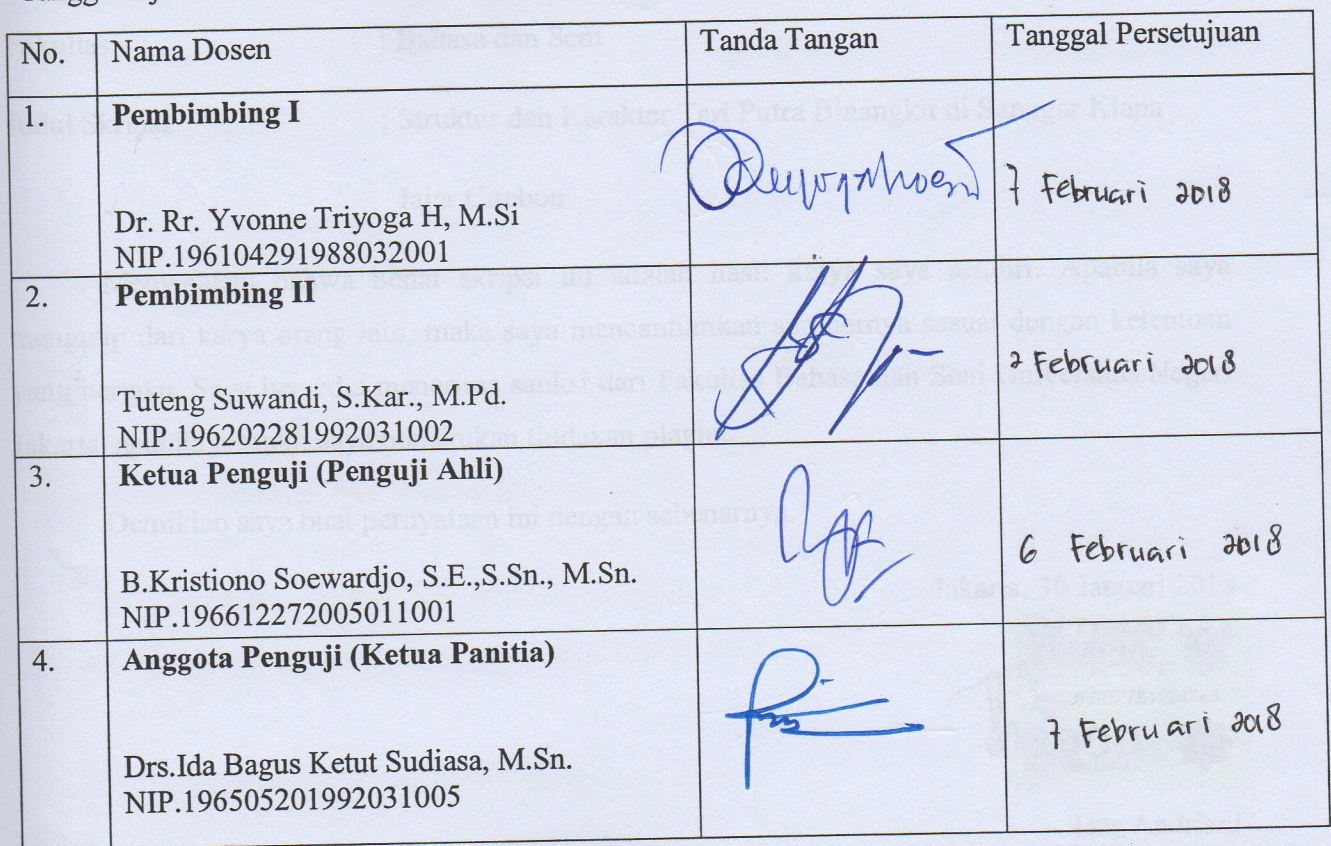 No. Nama Dosen Tanda Tangan Tanggal Persetujuan
1. Pembimbing I
Dr. Rr. Yvonne Triyoga H, M.Si
NIP.196104291988032001
7 Februari 2018
2. Pembimbing II
Tuteng Suwandi, S.Kar., M.Pd.
NIP.196202281992031002
7 Februari 2018
3. Ketua Penguji (Penguji Ahli)
B.Kristiono Soewardjo, S.E.,S.Sn., M.Sn.
NIP.196612272005011001
6 Februari 2018
4. Anggota Penguji (Ketua Panitia)
Drs.Ida Bagus Ketut Sudiasa, M.Sn.
NIP.196505201992031005
7 Februari 2018